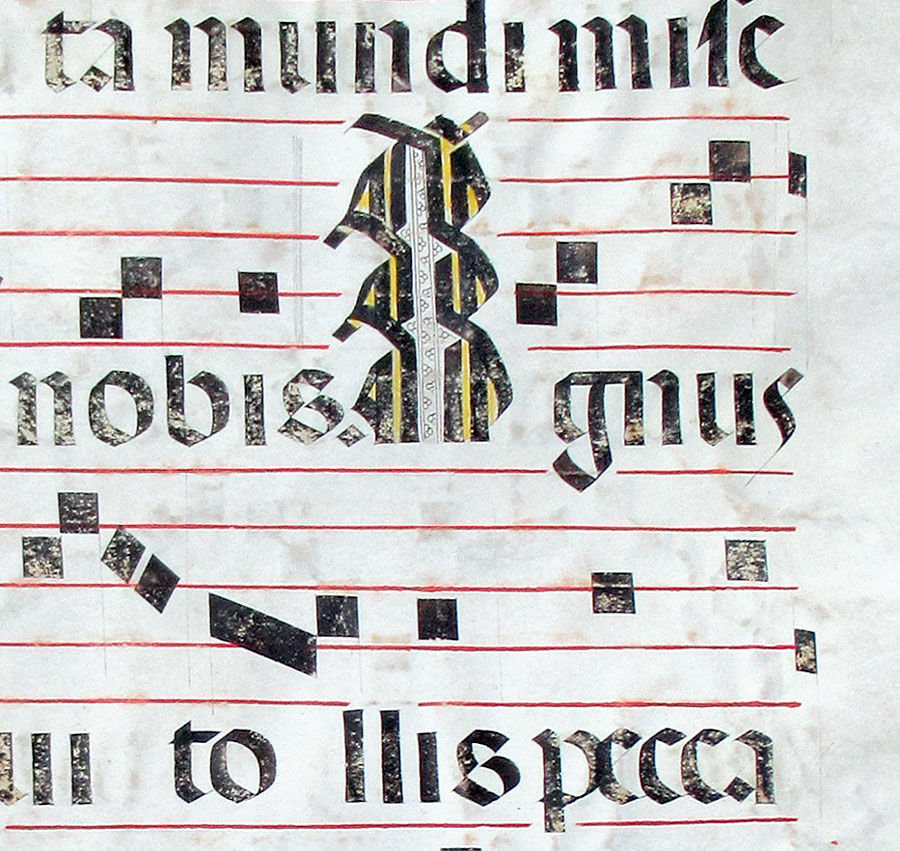 ta mundi mise
nobis. A gnus
ui to llis pecca